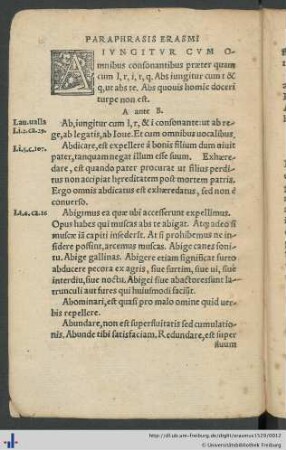 PARAPHRASIS ERASMI
A IVNGITVR CVM O-
mnibus consonantibus præter quam
cum l, r, i, t, q. Abs iungitur cum t &
q, ut abs te. Abs quouis homie doceri
turpe non est.
A ante B.
Lau. ualla
Li.2.ca.29.
Ab, iungitur cum l, r, & i consonante: ut ab re
ge, ab legatis, ab Ioue. Et cum omnibus uocalibus.
Li.5.c.107.
Abdicare, est expellere á bonis filium dum uiuit
pater, tanquam negat illum esse suum. Exhære-
dare, est quando pater procurat ut filius perdi-
tus non accipiat hæreditatem post mortem patris.
Ergo omnis abdicatus est exhæredatus, sed non é
conuerso.
Abigimus ea quæ ubi accesserunt expellimus.
Opus habes qui muscas abs te abigat. Atq; adeo si
muscæ iã capiti insederût. At si prohibemus ne in-
sidere possint, arcemus muscas. Abige canes soni-
tu. Abige gallinas. Abigere etiam significat furto
abducere pecora ex agris, siue furtim, siue ui, siue
interdiu, siue noctu. Abigei siue abactores sunt la-
trunculi aut fures qui huiusmodi faciût.
Abominari, est quasi pro malo omine quid uer-
bis repellere.
Abundare, non est superfluitatis sed cumulatio-
nis. Abunde tibi satisfaciam. Redundare, est super
fluum
http://dl.ub.uni-freiburg.de/diglit/erasmus1529/0012
Universitätsbibliothek Freiburg